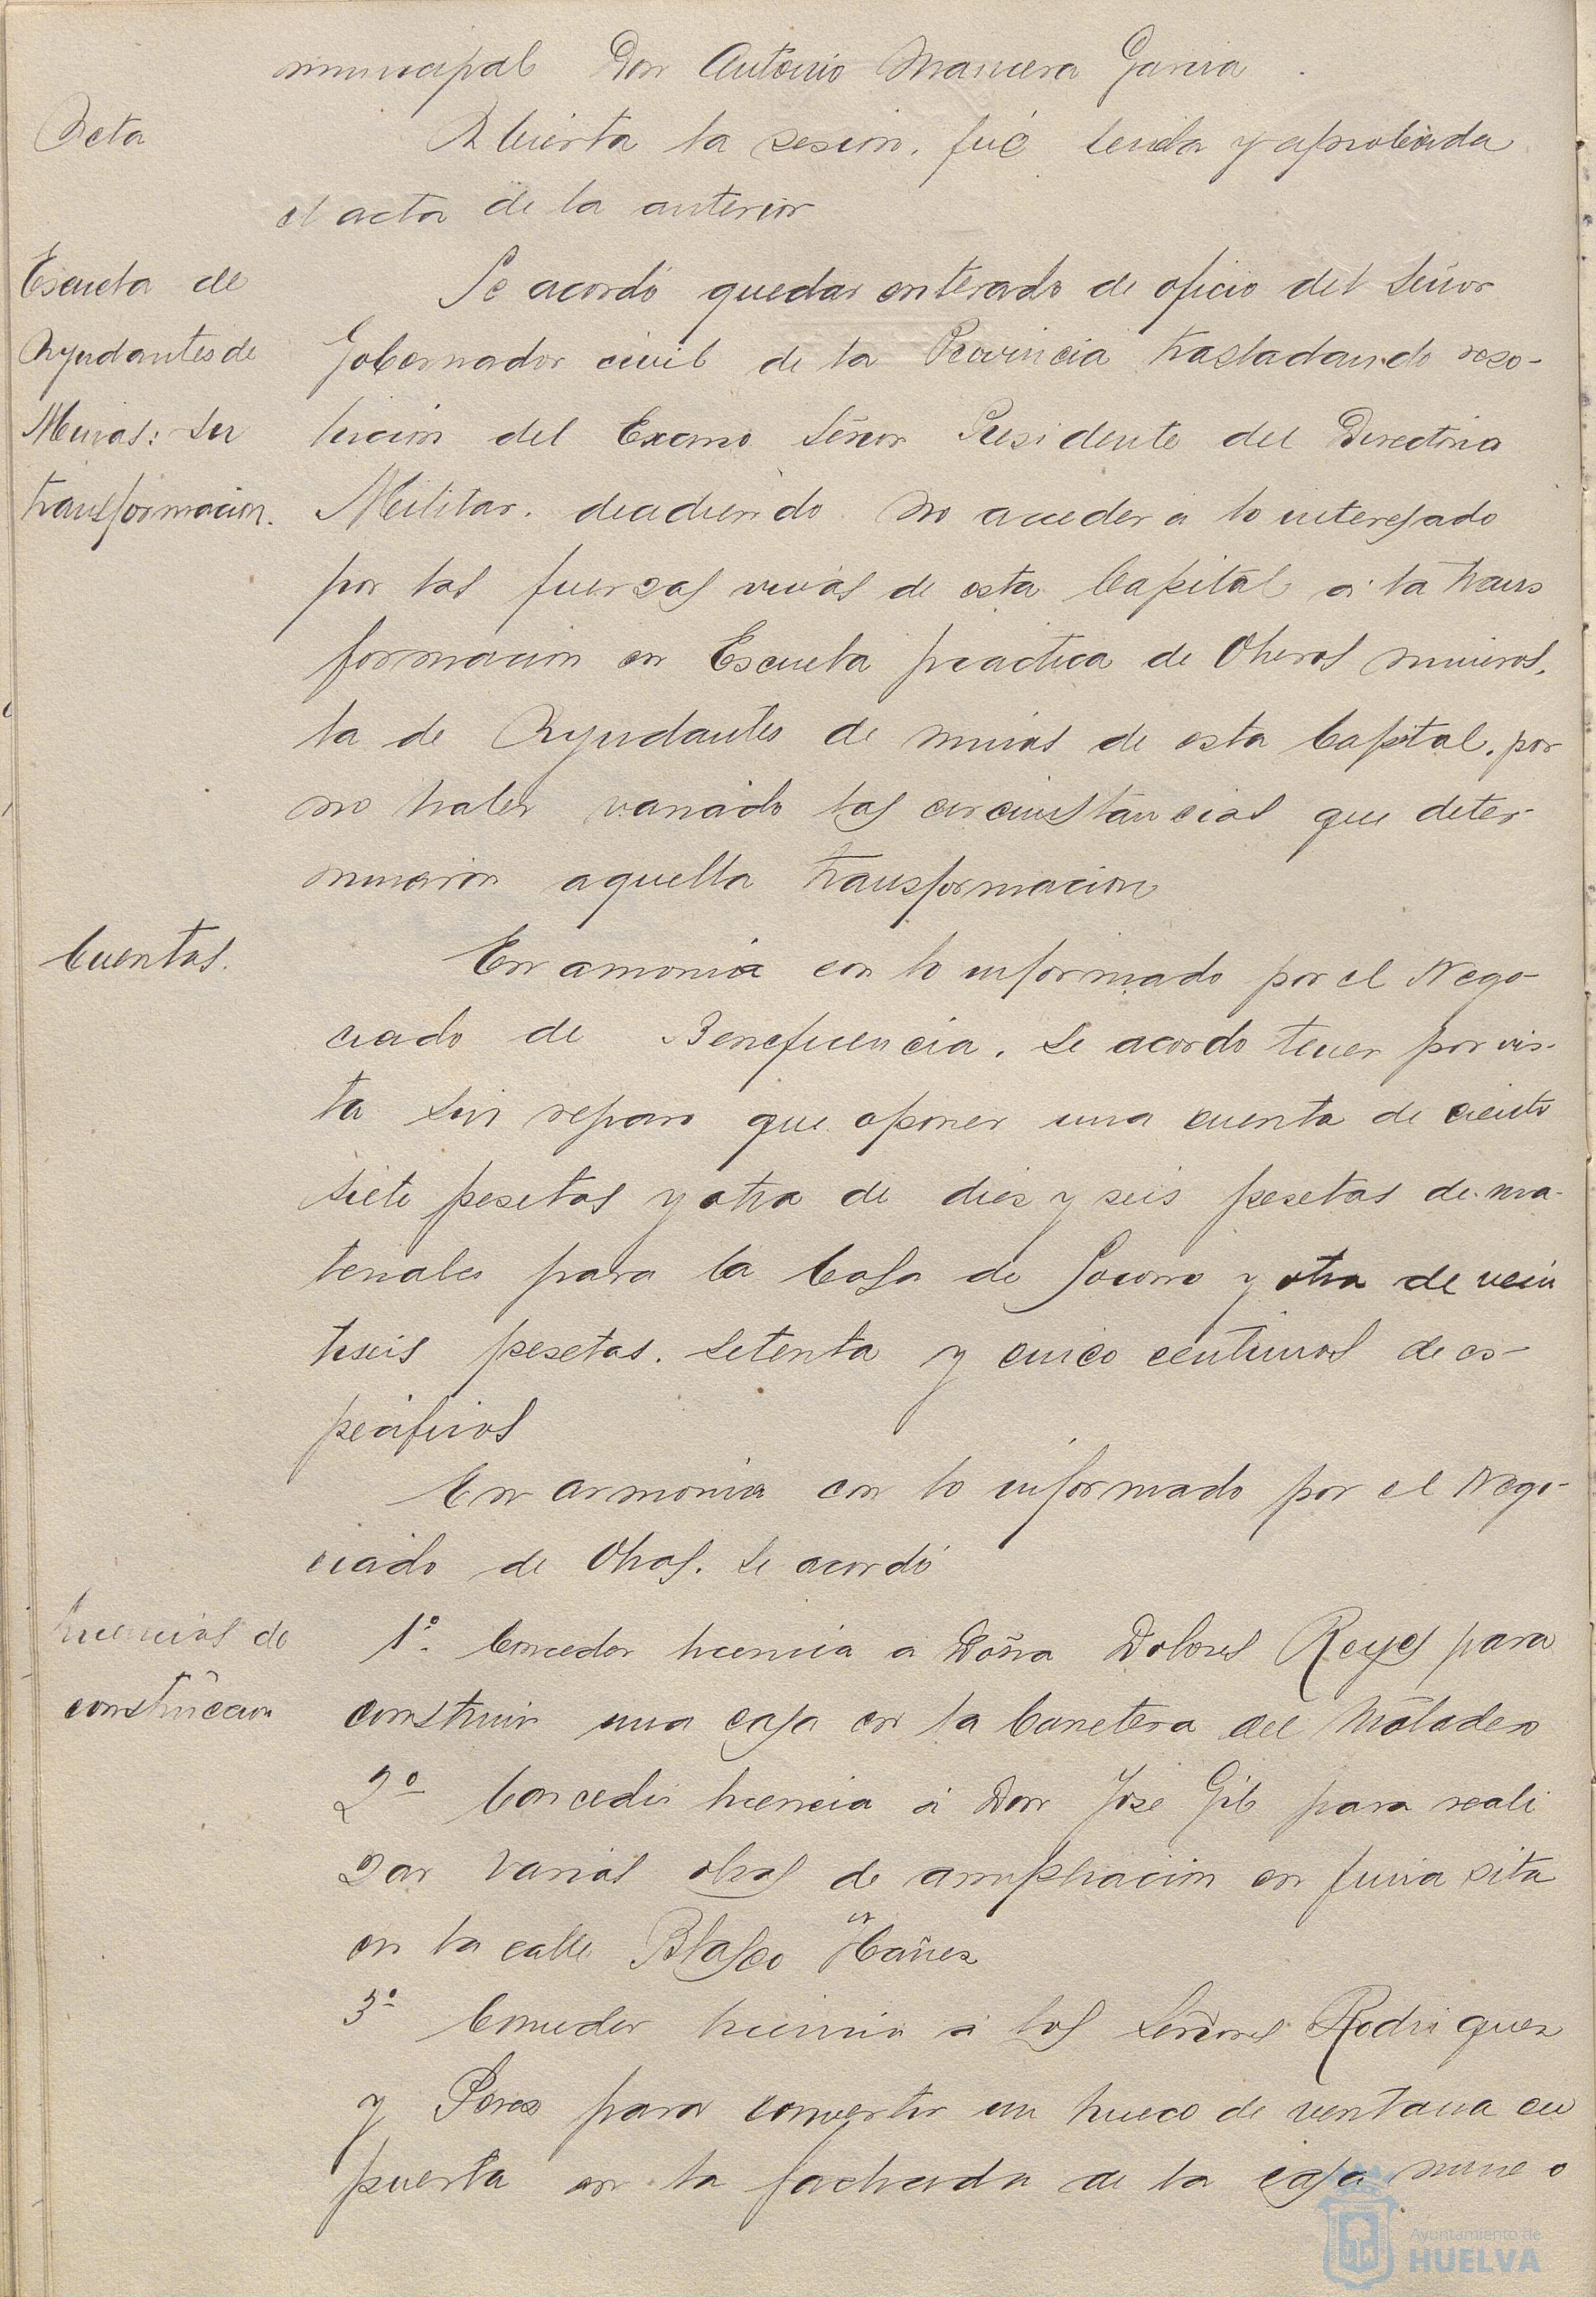 municipal Don Antonio Mancera Garcia.
Acta
Abierta la sesion, fué leida y aprobada
el acta de la anterior
Escuela de
Ayudantes de
Minas: su
transformacion.
Se acordó quedar enterado de oficio del Señor
Gobernador civil de la Provincia trasladando reso-
lucion del Excmo Señor Presidente del Directorio
Militar, no acceder a lo interesado
por las fuerzas vivas de esta Capital a la trans
formacion en Escuela practica de Obreros mineros,
la de Ayudantes de minas de esta Capital, por
no haber variado las circunstancias que deter-
minaron aquella transformacion
Cuentas.
En armonia con lo informado por el Nego-
ciado de Beneficencia, se acordo tener por vis-
ta sin reparo que oponer una cuenta de ciento
siete pesetas y otra de diez y seis pesetas de ma-
teriales para la Casa de Socorro y otra de vein
tiseis pesetas, setenta y cinco centimos de es-
pecificos
En armonia con lo informado por el Nego-
ciado de Obras, se acordó
Licencias de
construccion
1º Conceder licencia a Doña Dolores Reyes para
construir una casa en la Carretera del Matadero
2º Conceder licencia a Don José Gil para reali
zar varias obras de ampliacion en finca sita
en la calle Blasco Ybañez
3º Conceder licencia a los Señores Rodriguez
y Perez para convertir un hueco de ventana en
puerta en la fachada de la casa numero
Ayuntamiento de
HUELVA